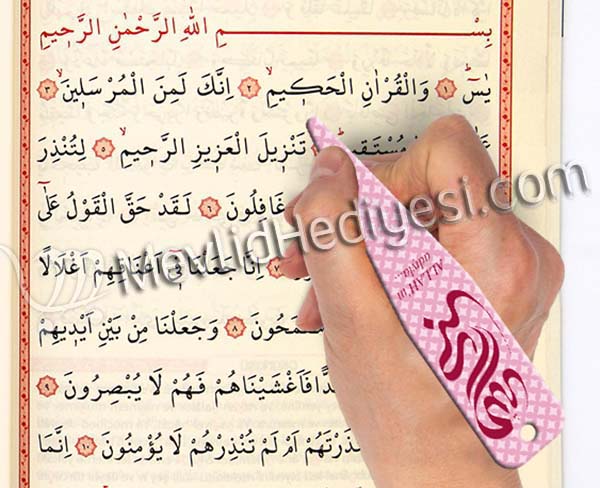 بِسْــــــــمِ اللّٰهِ الرَّحْمٰنِ الرَّح۪يمِ
يٰسٓۜ ﴿١﴾ وَالْقُرْاٰنِ الْحَك۪يمِۙ ﴿٢﴾ اِنَّكَ لَمِنَ الْمُرْسَل۪ينَۙ ﴿٣﴾
تَنْز۪يلَ الْعَز۪يزِ الرَّح۪يمِۙ ﴿٥﴾ لِتُنْذِرَ
غَافِلُونَ ﴿٦﴾ لَقَدْ حَقَّ الْقَوْلُ عَلٰٓى
﴿٧﴾ اِنَّا جَعَلْنَا ف۪ٓي اَعْنَاقِهِمْ اَغْلَالًا
﴿٨﴾ وَجَعَلْنَا مِنْ بَيْنِ اَيْد۪يهِمْ
فَاَغْشَيْنَاهُمْ فَهُمْ لَا يُبْصِرُونَ ﴿٩﴾
اَمْ لَمْ تُنْذِرْهُمْ لَا يُؤْمِنُونَ ﴿١٠﴾ اِنَّمَا
MevlidHediyesi.com
ALLAH'ın
adıyla...